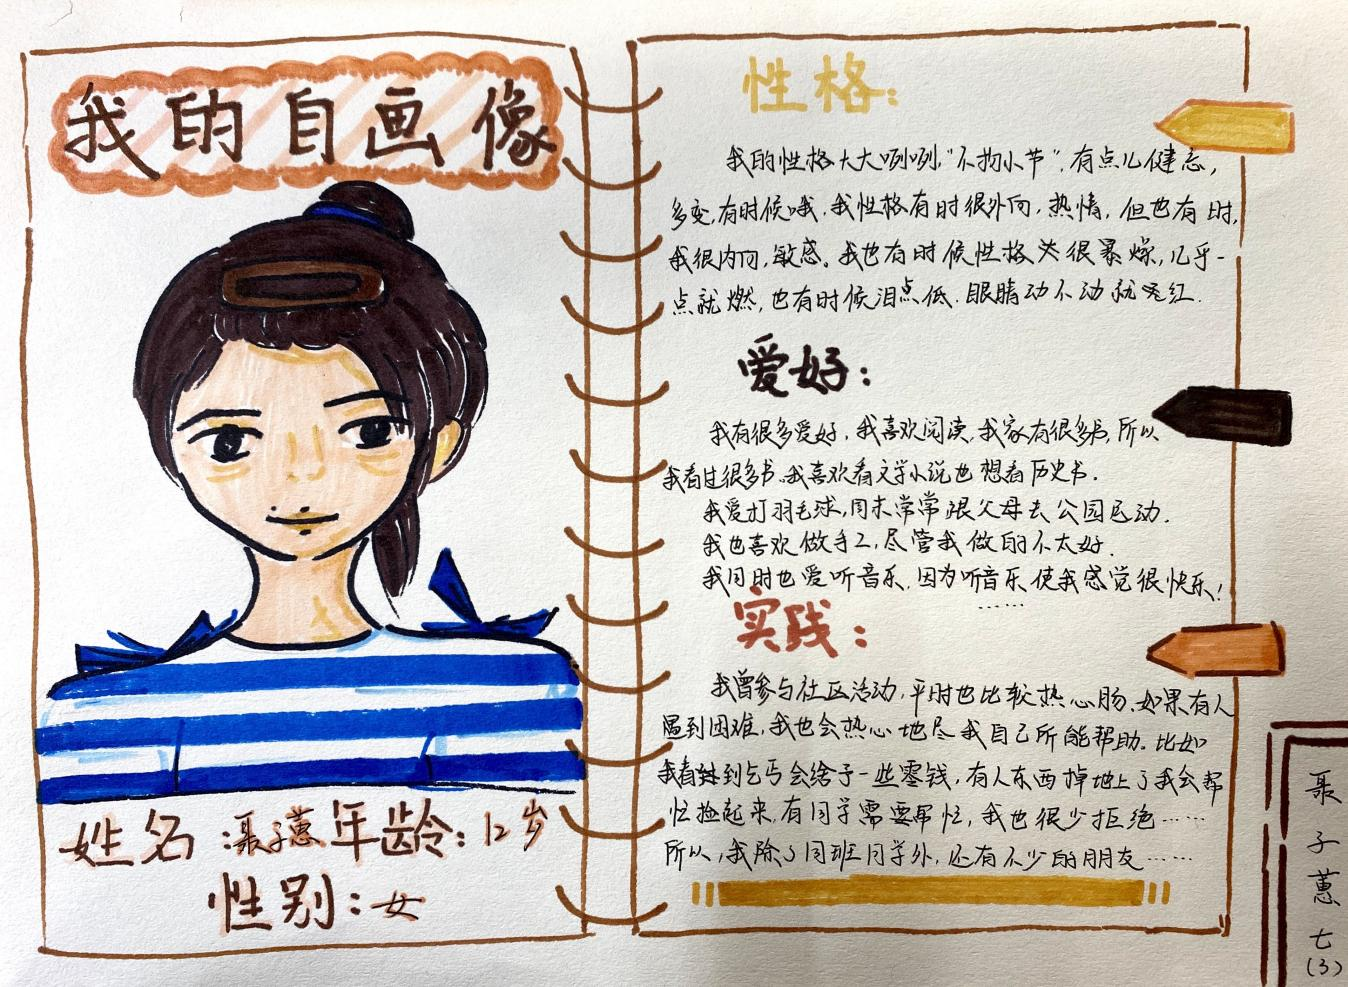 我的自画像
姓名:聂子蕙 年龄:12岁
性别:女
性格:
我的性格大大咧咧,"不拘小节",有点儿健忘,
多变,有时候哦,我性格有时很外向,热情,但也有时,
我很内向,敏感。我也有时候性格很暴燥,几乎一
点就燃,也有时候泪点低.眼睛动不动就红.
爱好:
我有很多爱好,我喜欢阅读,我家有很多书,所以
我看过很多书.我喜欢看文学小说也想看历史书.
我爱打羽毛球,周末常常跟父母去公园运动.
我也喜欢做手工,尽管我做的不太好.
我同时也爱听音乐,因为听音乐使我感觉很快乐!
……
实践:
我曾参与社区活动,平时也比较热心肠.如果有人
遇到困难,我也会热心地尽我自己所能帮助.比如
我看到乞丐会给予一些零钱,有人东西掉地上了我会帮
忙捡起来,有同学需要帮忙,我也很少拒绝……
所以,我除了同班同学外,还有不少的朋友……
聂子蕙
七(3)